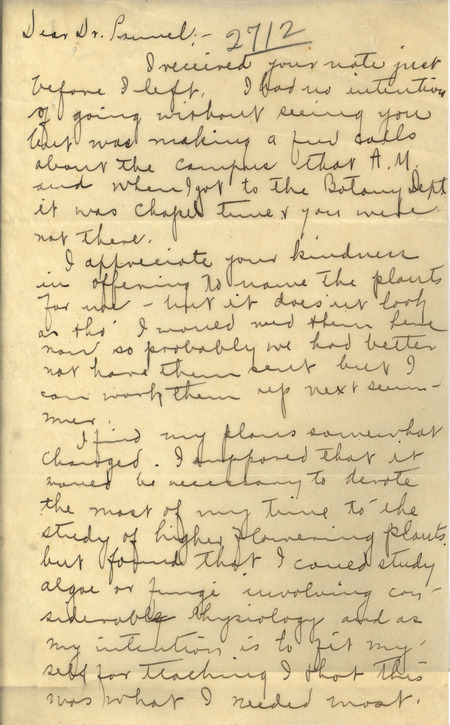 Dear Dr. Pammel:-
2712
I received your note just
before I left. I had no intention
of going without seeing you
but was making a few calls
about the campus that A.M.
and when I got to the Botany Dept
it was chapel time & you were
not there.
I appreciate your kindness
in offering to name the plants
for me - but it does'nt look
as tho' I would need them here
now so probably we had better
not have them sent but I
can work them up next sum-
mer.
I find my plans somewhat
changed. I supposed that it
would be necessary to devote
the most of my time to the
study of higher flowering plants
but found that I could study
algae or fungi involving con-
siderable Physiology and as
my intention is to fit my-
self for teaching I thot this
was what I needed most.